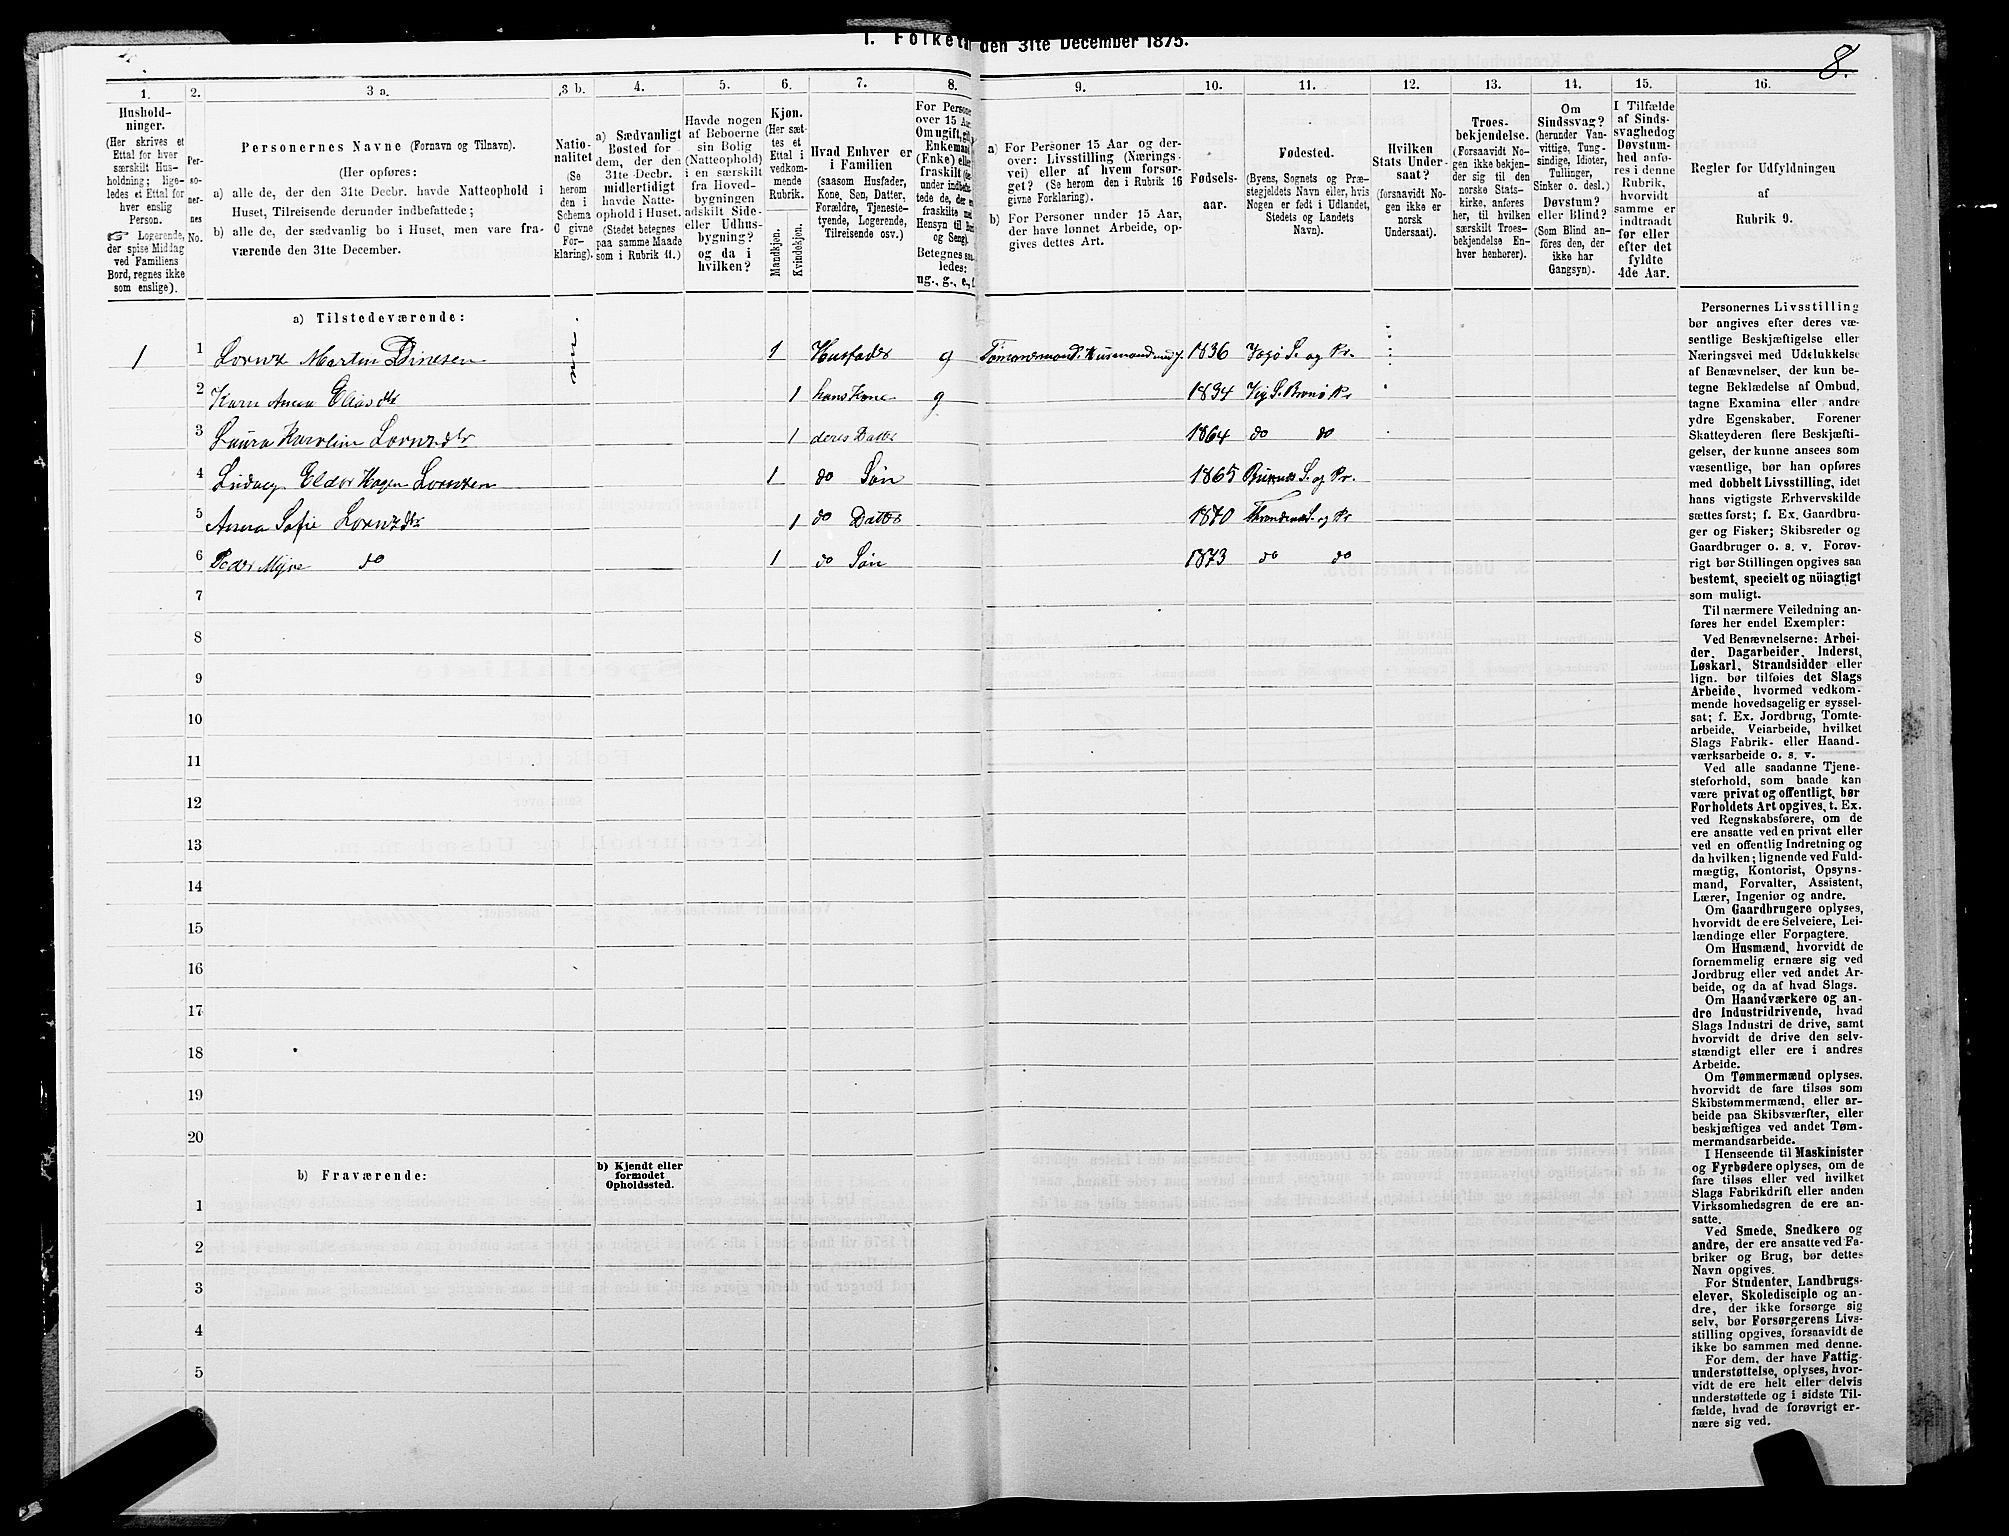 1. Folket
den 31te December 1875.
8.
1.
2.
3 a.
3 b.
4.
5.
6.
7.
8.
9.
10.
11.
12.
13.
14.
15.
16.
Hushold-
ninger.
(Her skrives et
Ettal for hver
særskilt Hus-
holdning; lige-
ledes et Ettal for
hver enslig
Person.
☞ Logerende,
der spise Middag
ved Familiens
Bord, regnes ikke
som enslige).
Per-
so-
ner-
nes
No.
Personernes Navne (Fornavn og Tilnavn).
(Her opføres:
a) alle de, der den 31te Decbr. havde Natteophold i
Huset, Tilreisende derunder indbefattede;
b) alle de, der sædvanlig bo i Huset, men vare fra-
værende den 31te December.
Natio-
nalitet
(Se
herom
den i
Schema
C givne
For-
klaring).
a) Sædvanligt
Bosted for
dem, der den
31te Decbr.
midlertidigt
havde Natte-
ophold i Huset.
(Stedet betegnes
paa samme Maade
som i Rubrik 11.)
Havde nogen
af Beboerne
sin Bolig
(Natteophold)
i en særskilt
fra Hoved-
bygningen
adskilt Side-
eller Udhus-
bygning?
og da i
hvilken?
Kjøn.
(Her sæt-
tes et
Ettal i
vedkom-
mende
Rubrik.
Mandkjøn.
Kvindekjøn.
Hvad Enhver er
i Familien
(saasom Husfader,
Kone, Søn, Datter,
Forældre, Tjeneste-
tyende, Logerende,
Tilreisende osv.)
For Persone
over 15 Aar
Om ugift, gift,
Enkemand
(Enke) eller
fraskilt
under indbefat-
tede de, der e
fraskilte
Hensyn til Bord
og Seng).
Betegnes saa-
ledes:
ug., g., e., f.
a) For Personer 15 Aar og der-
over: Livsstilling (Nærings-
vei) eller af hvem forsør-
get? (Se herom den i Rubrik 16
givne Forklaring).
b) For Personer under 15 Aar,
der have lønnet Arbeide, op-
gives dettes Art.
Fødsels-
aar.
Fødested.
(Byens, Sognets og Præ-
stegjeldets Navn eller, hvis
Nogen er født i Udlandet,
Stedets og Landets
Navn).
Hvilken
Stats Under-
saat?
(forsaavidt No-
gen ikke er
norsk
Undersaat).
Troes-
bekjendelse.
(Forsaavidt No-
gen ikke bekjen-
der sig til den
norske Stats-
kirke, anføres
her, til hvilken
særskilt Troes-
bekjendelse En-
hver henhører).
Om
Sindssvag?
(herunder Van-
vittige, Tung-
sindige, Idioter,
Tullinger,
Sinker o. desl.)
Døvstum?
eller Blind?
(Som Blind an-
føres den, der
ikke har
Gangsyn).
I Tilfælde
af Sinds-
svaghed og
Døvstum-
hed anfø-
res i denne
Rubrik,
hvorvidt
samme er
indtraadt
før eller
efter det
fyldte
4de Aar.
Regler for Udfyldningen
af
Rubrik 9.
a) Tilstedeværende:
1 1 Lornz Martin Dinesen 1 Husfader g 1836
2 Karn Anna Eliasdtr 1 hans Kone g 1834
3 Laura Karoline Lornzdtr 1 deres Datter 1864 do do
4 Ludvig Eldor Hagen Lorntzen 1 do Søn 1865 S. og Pr.
5 Anna Sofie Lornzdtr 1 do Datter 1870 Trondenes S. og Pr
6 Peder do 1 do Søn 1873 do do
7
8
9
10
11
12
13
14
15
16
17
18
19
20
b) Fraværende:
b) Kjendt eller
formodet
Opholdssted.
1
2
3
4
5
Personernes Livsstilling
bør angives efter deres væ-
sentlige Beskjæftigelse eller
Næringsvei med Udelukkelse
af Benævnelser, der kun be-
tegne Beklædelse af Ombud,
tagne Examina eller andre
ydre Egenskaber. Forener
Skatteyderen flere Beskjæfti-
gelser, der kunne ansees som
væsentlige, bør han opføres
med dobbelt Livsstilling, idet
hans vigtigste Erhvervskilde
sættes først; f. Ex. Gaardbru-
ger og Fisker; Skibsreder og
Gaardbruger o. s. v. Forøv-
rigt bør Stillingen opgives saa
bestemt, specielt og nöiagtigt
som muligt.
Til nærmere Veiledning an-
føres her endel Exempler:
Ved Benævnelserne: Arbei-
der, Dagarbeider, Inderst,
Løskarl, Strandsidder eller
lign. bør tilføies det Slags
Arbeide, hvormed vedkom-
mende hovedsagelig er syssel-
sat; f. Ex. Jordbrug, Tomte-
arbeide, Veiarbeide, hvilket
Slags Fabrik- eller Haand-
værksarbeide o. s. v.
Ved alle saadanne Tjene-
steforhold, som baade kan
være privat og offentligt, bør
Forholdets Art opgives, t. Ex.
ved Regnskabsførere, om de
ere ansatte ved en privat eller
ved en offentlig Indretning og
da hvilken; lignende ved Fuld-
mægtig, Kontorist, Opsyns-
mand, Forvalter, Assistent,
Lærer, Ingeniør og andre.
Om Gaardbrugere oplyses,
hvorvidt de ere Selveiere, Lei-
lændinge eller Forpagtere.
Om Husmænd, hvorvidt de
fornemmelig ernære sig ved
Jordbrug eller ved andet Ar-
beide, og da af hvad Slags.
Om Haandværkere og an-
dre Industridrivende, hvad
Slags Industri de drive, samt
hvorvidt de drive den selv-
stændigt eller ere i andres
Arbeide.
Om Tømmermænd oplyses.
hvorvidt de fare tilsøs som
Skibstømmermænd, eller ar-
beide paa Skibsværfter, eller
beskjæftiges ved andet Tøm-
mermandsarbeide.
I Henseende til Maskinister
og Fyrbødere oplyses, om de
fare tilsøs eller ved hvilket
Slags Fabrikdrift eller anden
Virksomhedsgren de ere an-
satte.
Ved Smede, Snedkere og
andre, der ere ansatte ved Fa-
briker og Brug, bør dettes
Navn opgives.
For Studenter, Landbrugs-
elever, Skoledisciple og an-
dre, der ikke forsørge sig
selv, bør Forsørgerens Livs-
stilling opgives, forsaavidt de
ikke bo sammen med denne.
For dem, der have Fattig-
understøttelse, oplyses, hvor-
vidt de ere helt eller delvis
understøttede og i sidste Til-
fælde, hvad de forøvrigt er-
nære sig ved.